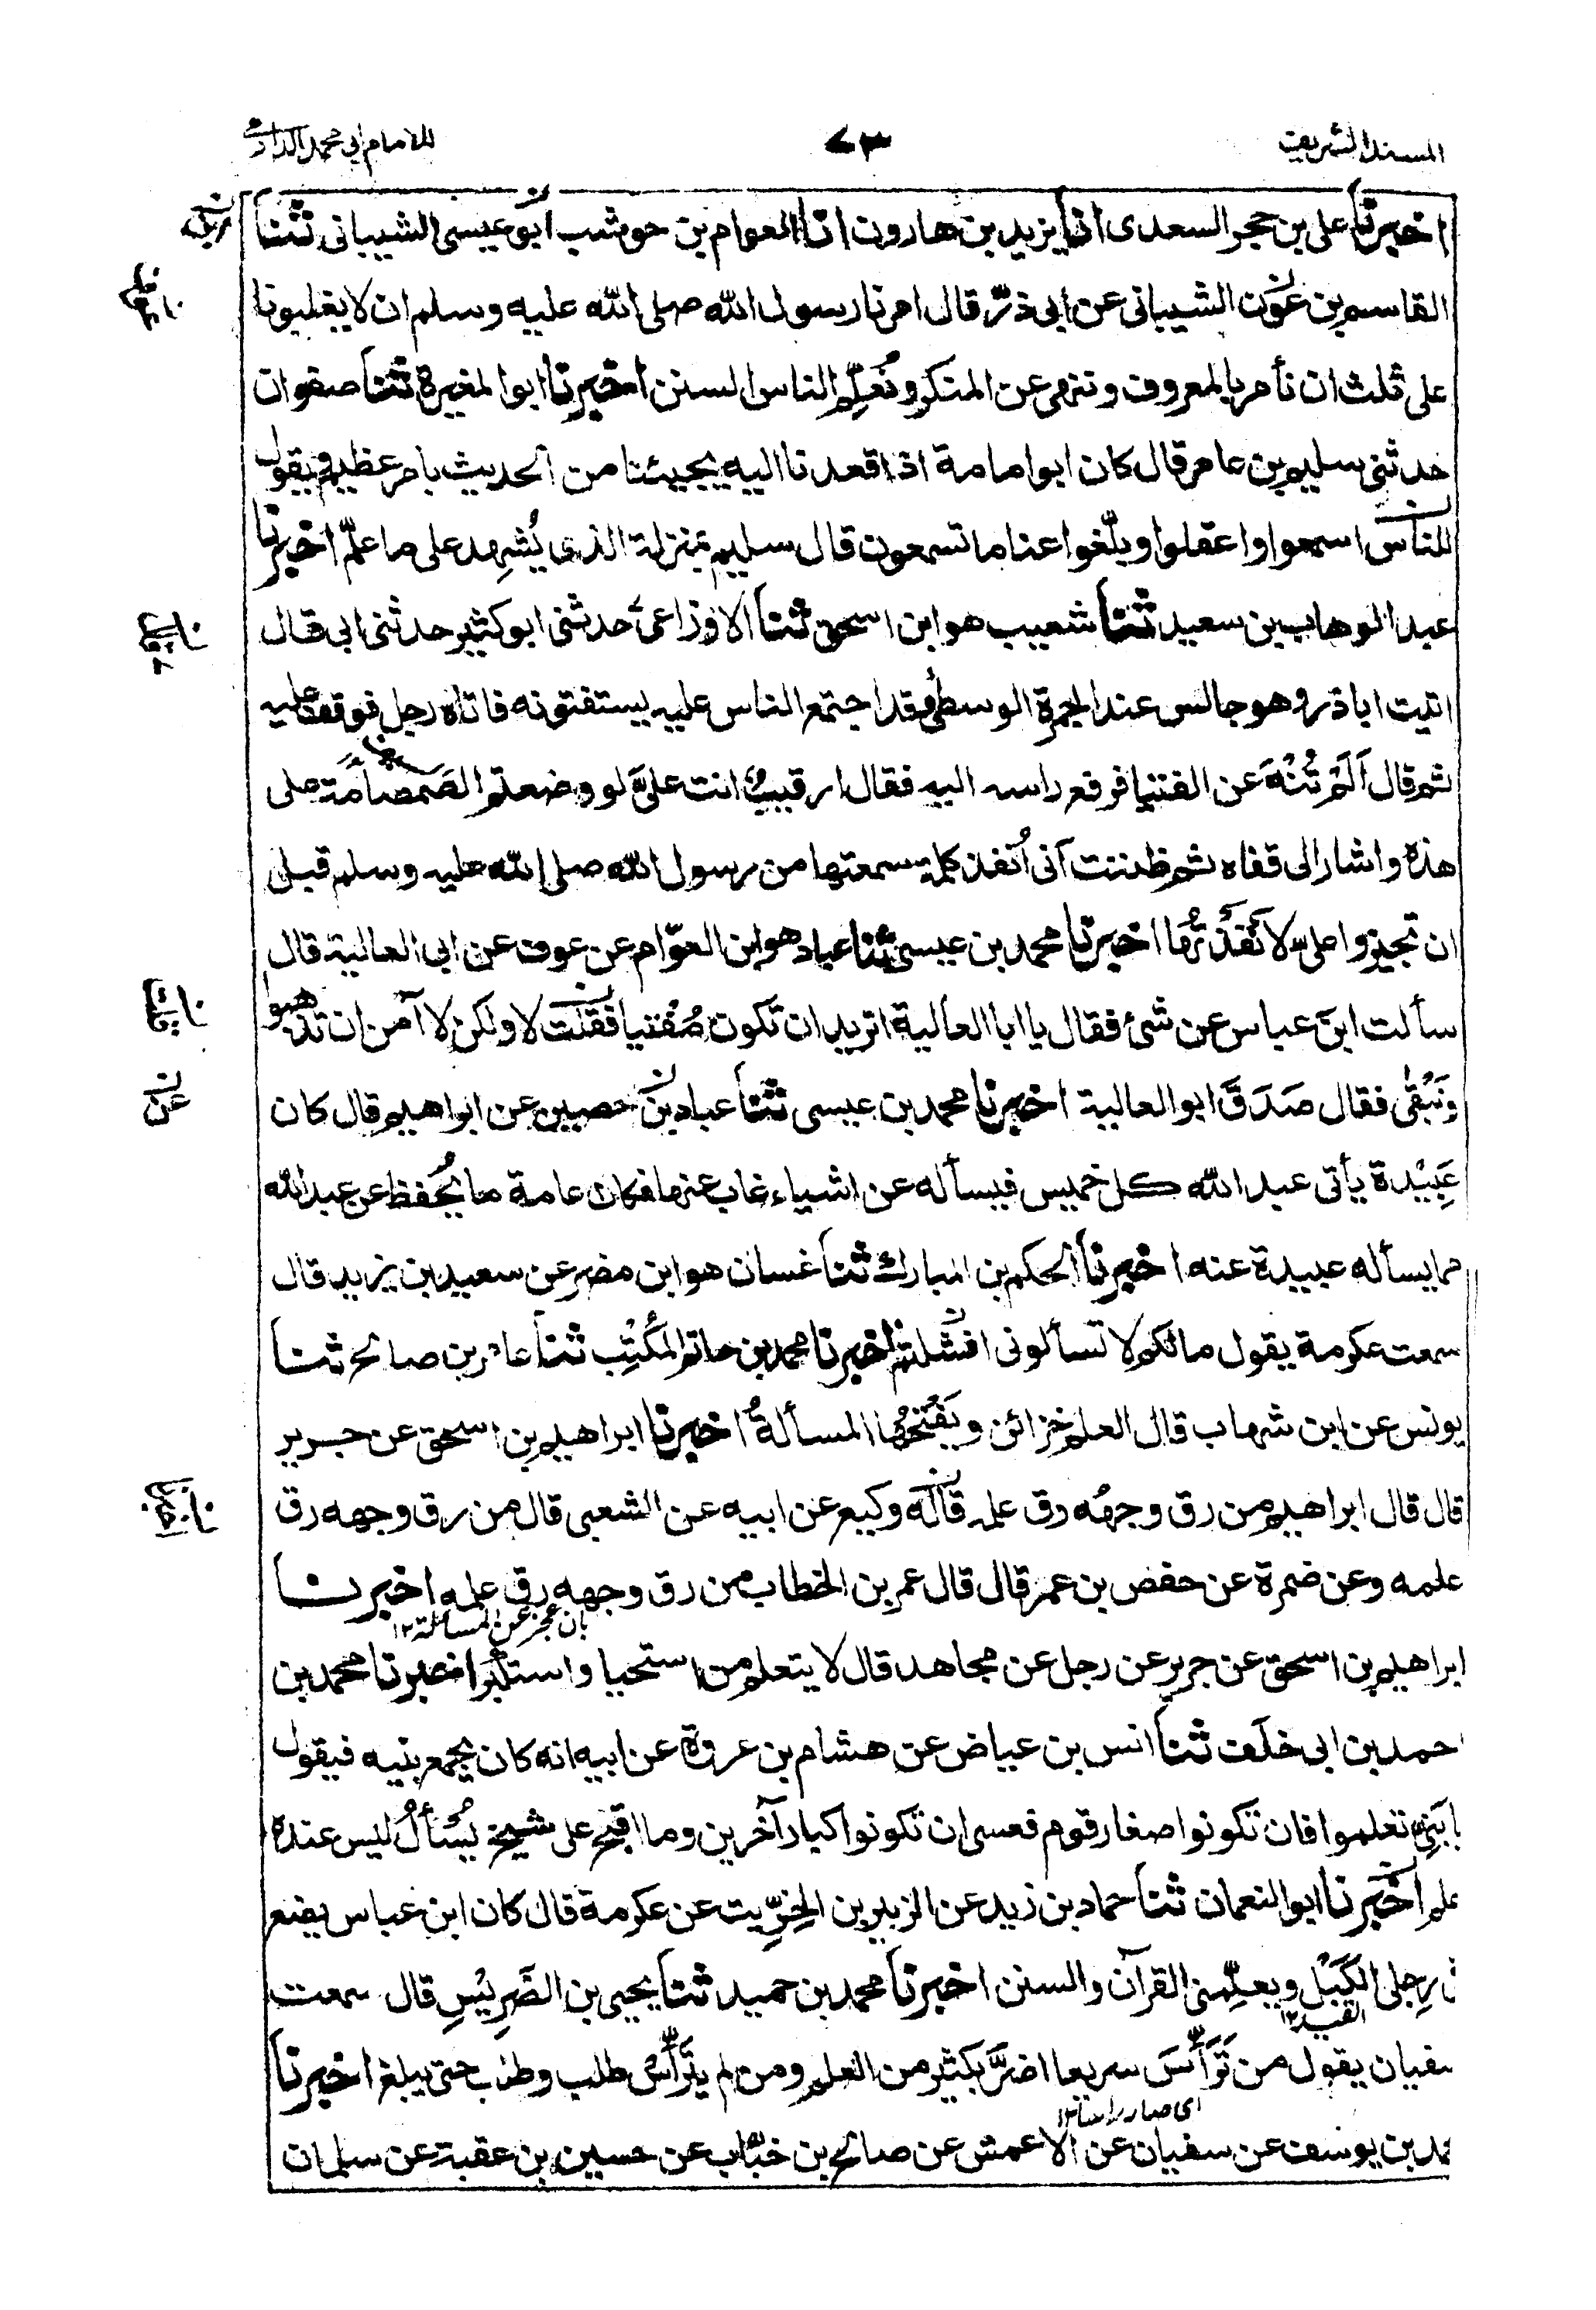 المسند الشريف ٧٣ للامام ابى محمد الدارمى
اخبرنا على بن حجر السعدى انا يزيد بن هارون انا العوام بن حوشب ابو عيسى الشيبانى ثنا
القاسم بن عون الشيبانى عن ابى ذر قال امرنا رسول الله صلى الله عليه وسلم ان لا يغلبونا
على ثلث ان نأمر بالمعروف وننهى عن المنكر ونُعَلِّم الناس السنن اخبرنا ابو المغيرة ثنا صفوان
حدثنى سليم بن عامر قال كان ابو امامة اذا قعدنا اليه يجيئنا من الحديث بامر عظيم ويقول
للناس اسمعوا واعقلوا وبلّغوا عنا ما تسمعون قال سليم بمنزلة الذى يُشهِد على ما علم اخبرنا
عبد الوهاب بن سعيد ثنا شعيب هو ابن اسحق ثنا الاوزاعى حدثنى ابو كثير حدثنى ابى قال
اتيت ابا ذر وهو جالس عند الجمرة الوسطى وقد اجتمع الناس عليه يستفتونه فاتاه رجل فوقف عليه
ثم قال اَلَمْ تُنْهَ عن الفتيا فرفع راسه اليه فقال ارقيب انت علىَّ لو وضعتم الصَمصامَة على
هذه واشار الى قفاه ثم ظننت انى اُنفذ كلمة سمعتها من رسول الله صلى الله عليه وسلم قبل
ان تجيزوا علىّ لاَنْفَذْتُها اخبرنا محمد بن عيسى ثنا عباد هو ابن العوّام عن عوف عن ابى العالية قال
سألت ابنَ عباس عن شئ فقال يا ابا العالية اتريد ان تكون مُفْتيا فقلت لا ولكن لا آمن ان تذهبو
ونَبْقٰى فقال صَدَقَ ابو العالية اخبرنا محمد بن عيسى ثنا عباد بن حصين عن ابراهيم قال كان
عَبِيْدة يأتى عبد الله كل خميس فيسأله عن اشياء غاب عنها فكان عامة ما يُحفظ عن عبد الله
مما يسأله عبيدة عنه اخبرنا الحكم بن المبارك ثنا غسان هو ابن مضر عن سعيد بن يزيد قال
سمعت عكرمة يقول مالكم لا تسألونى افشلتم اخبرنا محمد بن حاتم المُكْتِب ثنا عامر بن صالح ثنا
يونس عن ابن شهاب قال العلم خزائن ويَفْتحُها المسألةُ اخبرنا ابراهيم بن اسحق عن جرير
قال قال ابراهيم من رق وجهُه رق علمه قاله وكيع عن ابيه عن الشعبى قال من رق وجهه رق
علمه وعن ضمرة عن حفص بن عمر قال قال عمر بن الخطاب من رق وجهه رق علمه اخبرنا
بان عجز عن المسائلة ١٢
ابراهيم بن اسحق عن جرير عن رجل عن مجاهد قال لا يتعلم من استحيا واستكبر اخبرنا محمد بن
احمد بن ابى خلَف ثنا انس بن عياض عن هشام بن عروة عن ابيه انه كان يجمع بنيه فيقول
يا بَنِىَّ تعلموا فان تكونوا صغار قوم فعسى ان تكونوا كبار آخرين وما اقبح على شيخ يُسْأَلُ ليس عنده
علم اخبرنا ابو النعمان ثنا حماد بن زيد عن الزبير بن الخِرِّيت عن عكرمة قال كان ابن عباس يضع
رِجلى الكَبْل ويعلِّمنى القرآن والسنن اخبرنا محمد بن حميد ثنا يحيى بن الضَّرِيْسِ قال سمعت
القيد ١٢
سفيان يقول من تَرَأَّسَ سريعا اضرَّ بكثير من العلم ومن لم يتَرأَّسْ طلب وطلب حتى يبلغ اخبرنا
اى صار راسا ١٢
محمد بن يوسف عن سفيان عن الاعمش عن صالح بن خبّاب عن حسين بن عقبة عن سلمان
عن